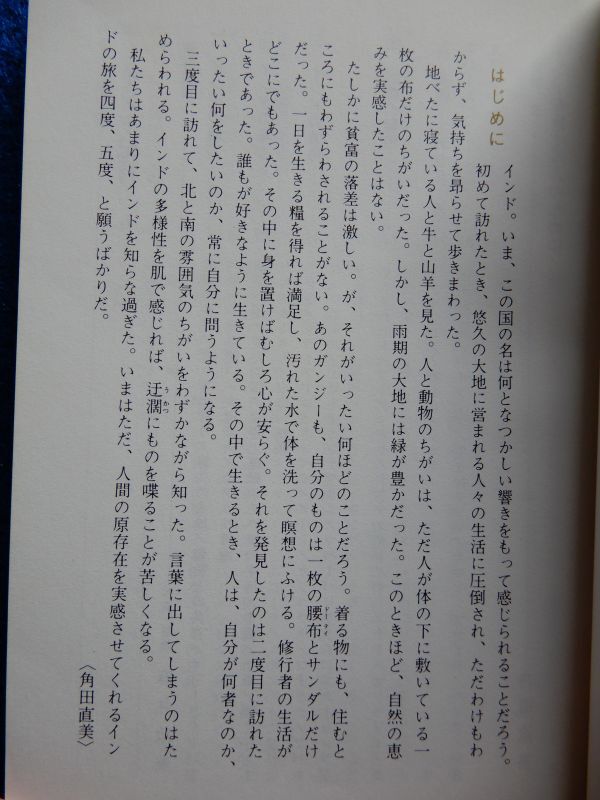 はじめに
インド。いま、この国の名は何となつかしい響きをもって感じられることだろう。
初めて訪れたとき、悠久の大地に営まれる人々の生活に圧倒され、ただわけもわ
からず、気持ちを昂らせて歩きまわった。
地べたに寝ている人と牛と山羊を見た。人と動物のちがいは、ただ人が体の下に敷いている一
枚の布だけのちがいだった。しかし、雨期の大地には緑が豊かだった。このときほど、自然の恵
みを実感したことはない。
たしかに貧富の落差は激しい。が、それがいったい何ほどのことだろう。着る物にも、住むと
ころにもわずらわされることがない。あのガンジーも、自分のものは一枚の腰布とサンダルだけ
ドーティ
だった。一日を生きる糧を得れば満足し、汚れた水で体を洗って瞑想にふける。修行者の生活が
どこにでもあった。その中に身を置けばむしろ心が安らぐ。それを発見したのは二度目に訪れた
ときであった。誰もが好きなように生きている。その中で生きるとき、人は、自分が何者なのか、
いったい何をしたいのか、常に自分に問うようになる。
三度目に訪れて、北と南の雰囲気のちがいをわずかながら知った。言葉に出してしまうのはた
めらわれる。インドの多様性を肌で感じれば、迂濶にものを喋ることが苦しくなる。
うかつ
私たちはあまりにインドを知らな過ぎた。いまはただ、人間の原存在を実感させてくれるイン
ドの旅を四度、五度、と願うばかりだ。
〈角田直美〉